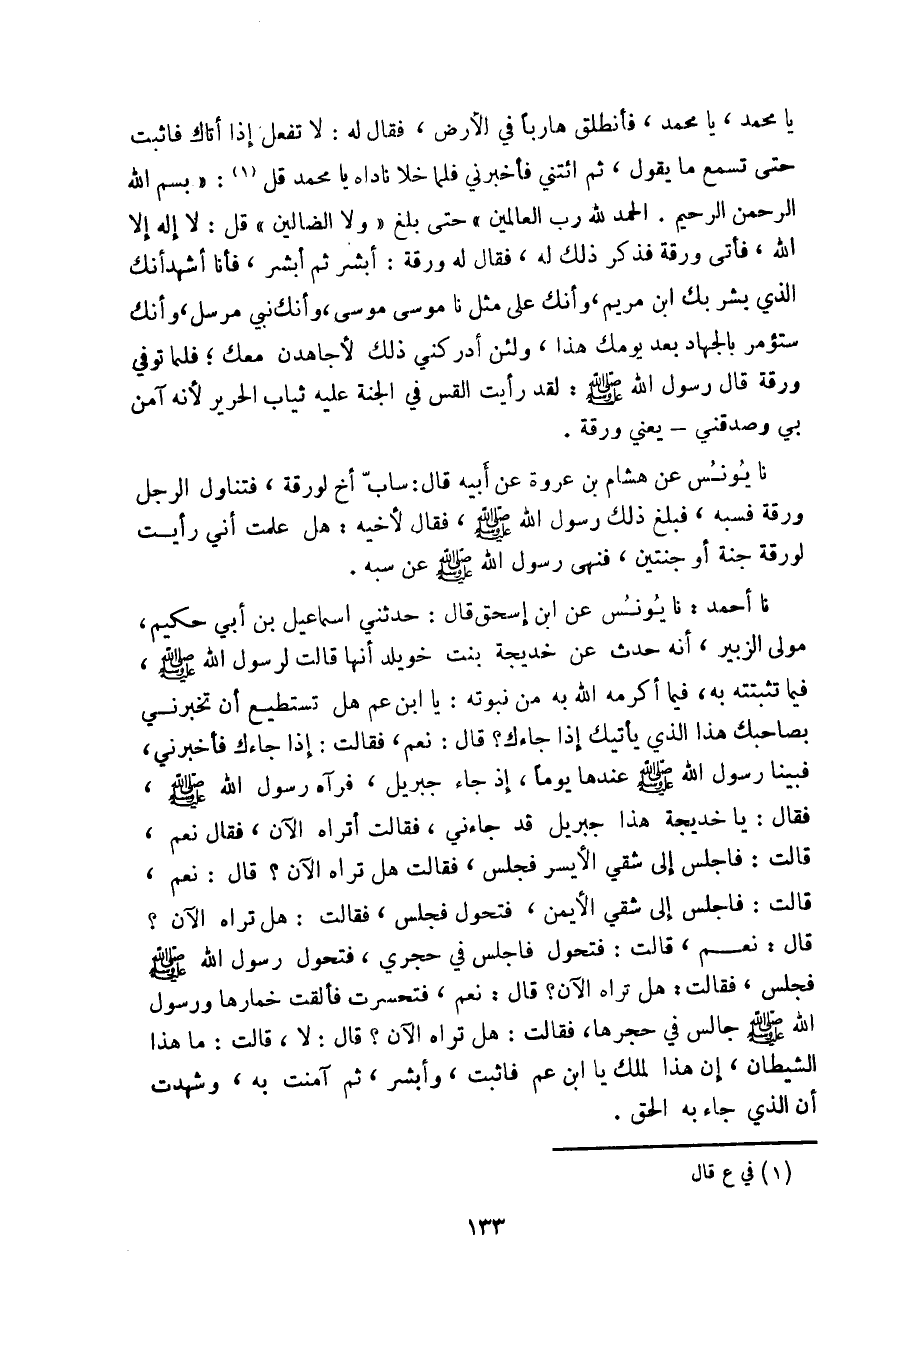 يا محمد ، يا محمد ، فأنطلق هارباً في الأرض ، فقال له : لا تفعل إذا أتاك فاثبت
حتى تسمع ما يقول ، ثم ائتني فأخبرني فلما خلا ناداه يا محمد قل (١) : « بسم الله
الرحمن الرحيم . الحمد لله رب العالمين » حتى بلغ « ولا الضالين » قل : لا إله إلا
الله ، فأتى ورقة فذكر ذلك له ، فقال له ورقة : أبشر ثم أبشر ، فأنا أشهد أنك
الذي بشر بك ابن مريم ، وأنك على مثل نا موسى موسى ، وأنك نبي مرسل ، وأنك
ستؤمر بالجهاد بعد يومك هذا ، ولئن أدركني ذلك لأجاهدن معك ؛ فلما توفي
ورقة قال رسول الله ﷺ : لقد رأيت القس في الجنة عليه ثياب الحرير لأنه آمن
بي وصدقني – يعني ورقة .
نا يُونُس عن هشام بن عروة عن أبيه قال : سابّ أخ لورقة ، فتناول الرجل
ورقة فسبه ، فبلغ ذلك رسول الله ﷺ ، فقال لأخيه : هل علمت أني رأيت
لورقة جنة أو جنتين ، فنهى رسول الله ﷺ عن سبه .
نا أحمد : نا يُونُس عن ابن إسحق قال : حدثني اسماعيل بن أبي حكيم ،
مولى الزبير ، أنه حدث عن خديجة بنت خويلد أنها قالت لرسول الله ﷺ ،
فيما تثبتته به ، فيما أكرمه الله به من نبوته : يا ابن عم هل تستطيع أن تخبرني
بصاحبك هذا الذي يأتيك إذا جاءك؟ قال : نعم ، فقالت : إذا جاءك فأخبرني ،
فبينا رسول الله ﷺ عندها يوماً ، إذ جاء جبريل ، فرآه رسول الله ﷺ ،
فقال : يا خديجة هذا جبريل قد جاءني ، فقالت أتراه الآن ، فقال نعم ،
قالت : فاجلس إلى شقي الأيسر فجلس ، فقالت هل تراه الآن ؟ قال : نعم ،
قالت : فاجلس إلى شقي الأيمن ، فتحول فجلس ، فقالت : هل تراه الآن ؟
قال : نعم ، قالت : فتحول فاجلس في حجري ، فتحول رسول الله ﷺ
فجلس ، فقالت : هل تراه الآن؟ قال : نعم ، فتحسرت فألقت خمارها ورسول
الله ﷺ جالس في حجرها ، فقالت : هل تراه الآن ؟ قال : لا ، قالت : ما هذا
الشيطان ، إن هذا لملك يا ابن عم فاثبت ، وأبشر ، ثم آمنت به ، وشهدت
أن الذي جاء به الحق .
(١) في ع قال
١٣٣